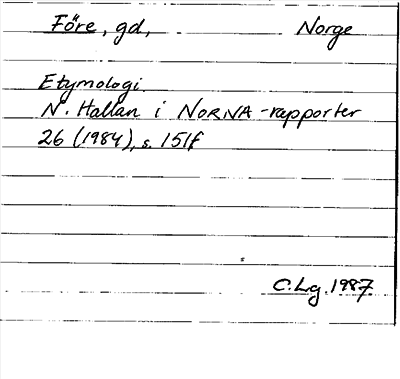 Före, gd, Norge
Etymologi.
N. Hallan i NORNA-rapporter
26 (1984), s. 151f
C.Lrg. 1987